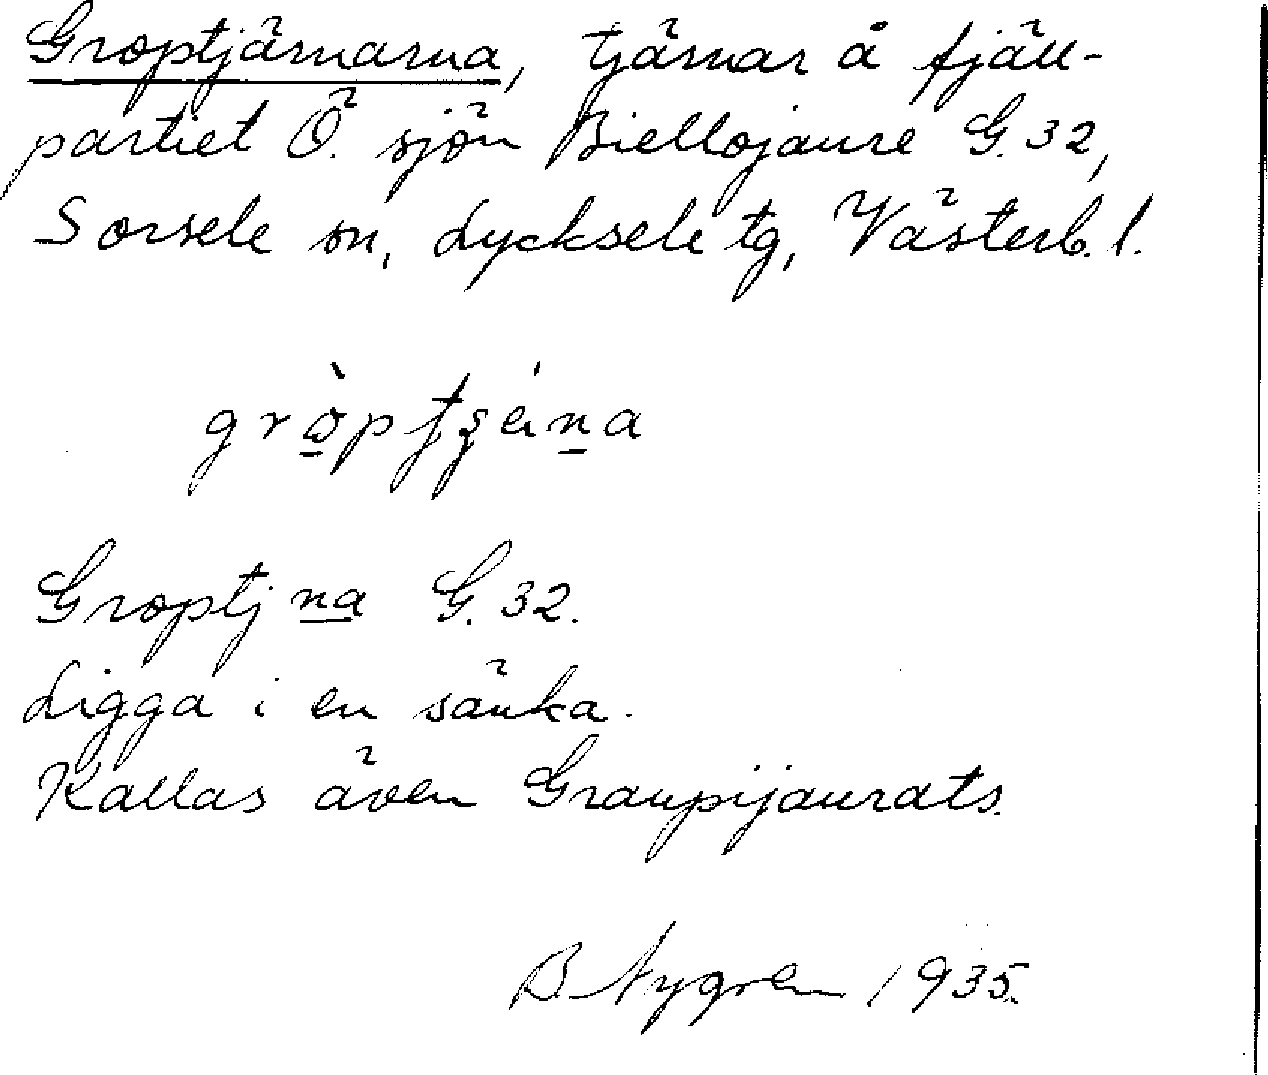 Groptjärnarna, tjärnar å fjäll-
partiet Ö. sjön Biellojaure G. 32,
Sorsele sn, Lycksele tg, Västerb. l.
Groptj na G. 32.
Ligga i en sänka.
Kallas även Graupijaurats.
B. Nygren 1935.